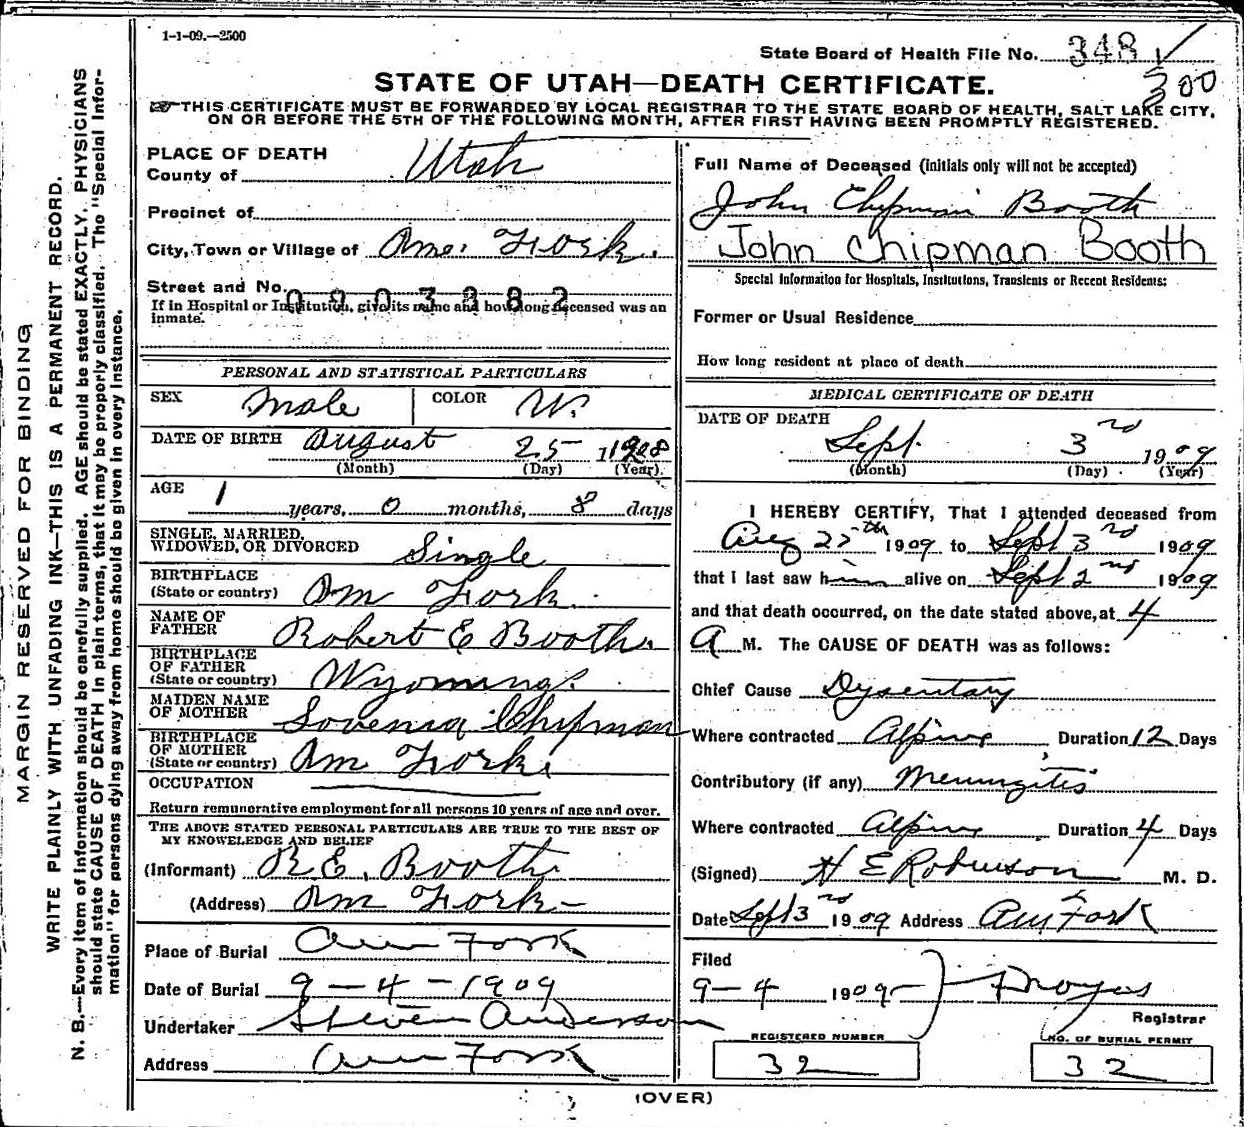 1-1-09.—2500
State Board of Health File No. 348
300
STATE OF UTAH—DEATH CERTIFICATE.
☞THIS CERTIFICATE MUST BE FORWARDED BY LOCAL REGISTRAR TO THE STATE BOARD OF HEALTH, SALT LAKE CITY,
ON OR BEFORE THE 5TH OF THE FOLLOWING MONTH, AFTER FIRST HAVING BEEN PROMPTLY REGISTERED.
MARGIN RESERVED FOR BINDING
WRITE PLAINLY WITH UNFADING INK—THIS IS A PERMANENT RECORD.
N. B.—Every item of information should be carefully supplied. AGE should be stated EXACTLY. PHYSICIANS
should state CAUSE OF DEATH in plain terms, that it may be properly classified. The "Special Infor-
mation" for persons dying away from home should be given in every instance.
PLACE OF DEATH
County of Utah
Precinct of
City, Town or Village of Ame. Fork.
Street and No.
0903282
If in Hospital or Institution, give its name and how long deceased was an
inmate.
PERSONAL AND STATISTICAL PARTICULARS
SEX Male COLOR W.
DATE OF BIRTH August 25 1908
(Month) (Day) (Year).
AGE 1 years, 0 months, 8 days
SINGLE, MARRIED,
WIDOWED, OR DIVORCED Single
BIRTHPLACE
(State or country) Am Fork.
NAME OF
FATHER Robert E Booth.
BIRTHPLACE
OF FATHER
(State or country) Wyoming.
MAIDEN NAME
OF MOTHER Sovenia Chipman
BIRTHPLACE
OF MOTHER
(State or country) Am Fork.
OCCUPATION
Return remunerative employment for all persons 10 years of age and over.
THE ABOVE STATED PERSONAL PARTICULARS ARE TRUE TO THE BEST OF
MY KNOWELEDGE AND BELIEF
(Informant) R.E. Booth.
(Address) Am Fork—
Place of Burial Am Fork
Date of Burial 9-4-1909
Undertaker Steven Anderson
Address Am Fork
Full Name of Deceased (initials only will not be accepted)
John Chipman Booth
John Chipman Booth
Special Information for Hospitals, Institutions, Transients or Recent Residents:
Former or Usual Residence
How long resident at place of death
MEDICAL CERTIFICATE OF DEATH
DATE OF DEATH
Sept. 3rd 1909
(Month) (Day) (Year)
I HEREBY CERTIFY, That I attended deceased from
Aug 25th 1909 to Sept 3rd 1909
that I last saw him alive on Sept 2nd 1909
and that death occurred, on the date stated above, at 4
A M. The CAUSE OF DEATH was as follows:
Chief Cause Dysentary
Where contracted Alpine Duration 12 Days
Contributory (if any) Meningitis
Where contracted Alpine Duration 4 Days
(Signed) H E Robinson M. D.
Date Sept 3rd 1909 Address Am Fork
Filed
9-4 1909 J F Noyes
Registrar
REGISTERED NUMBER
32
NO. OF BURIAL PERMIT
32
(OVER)